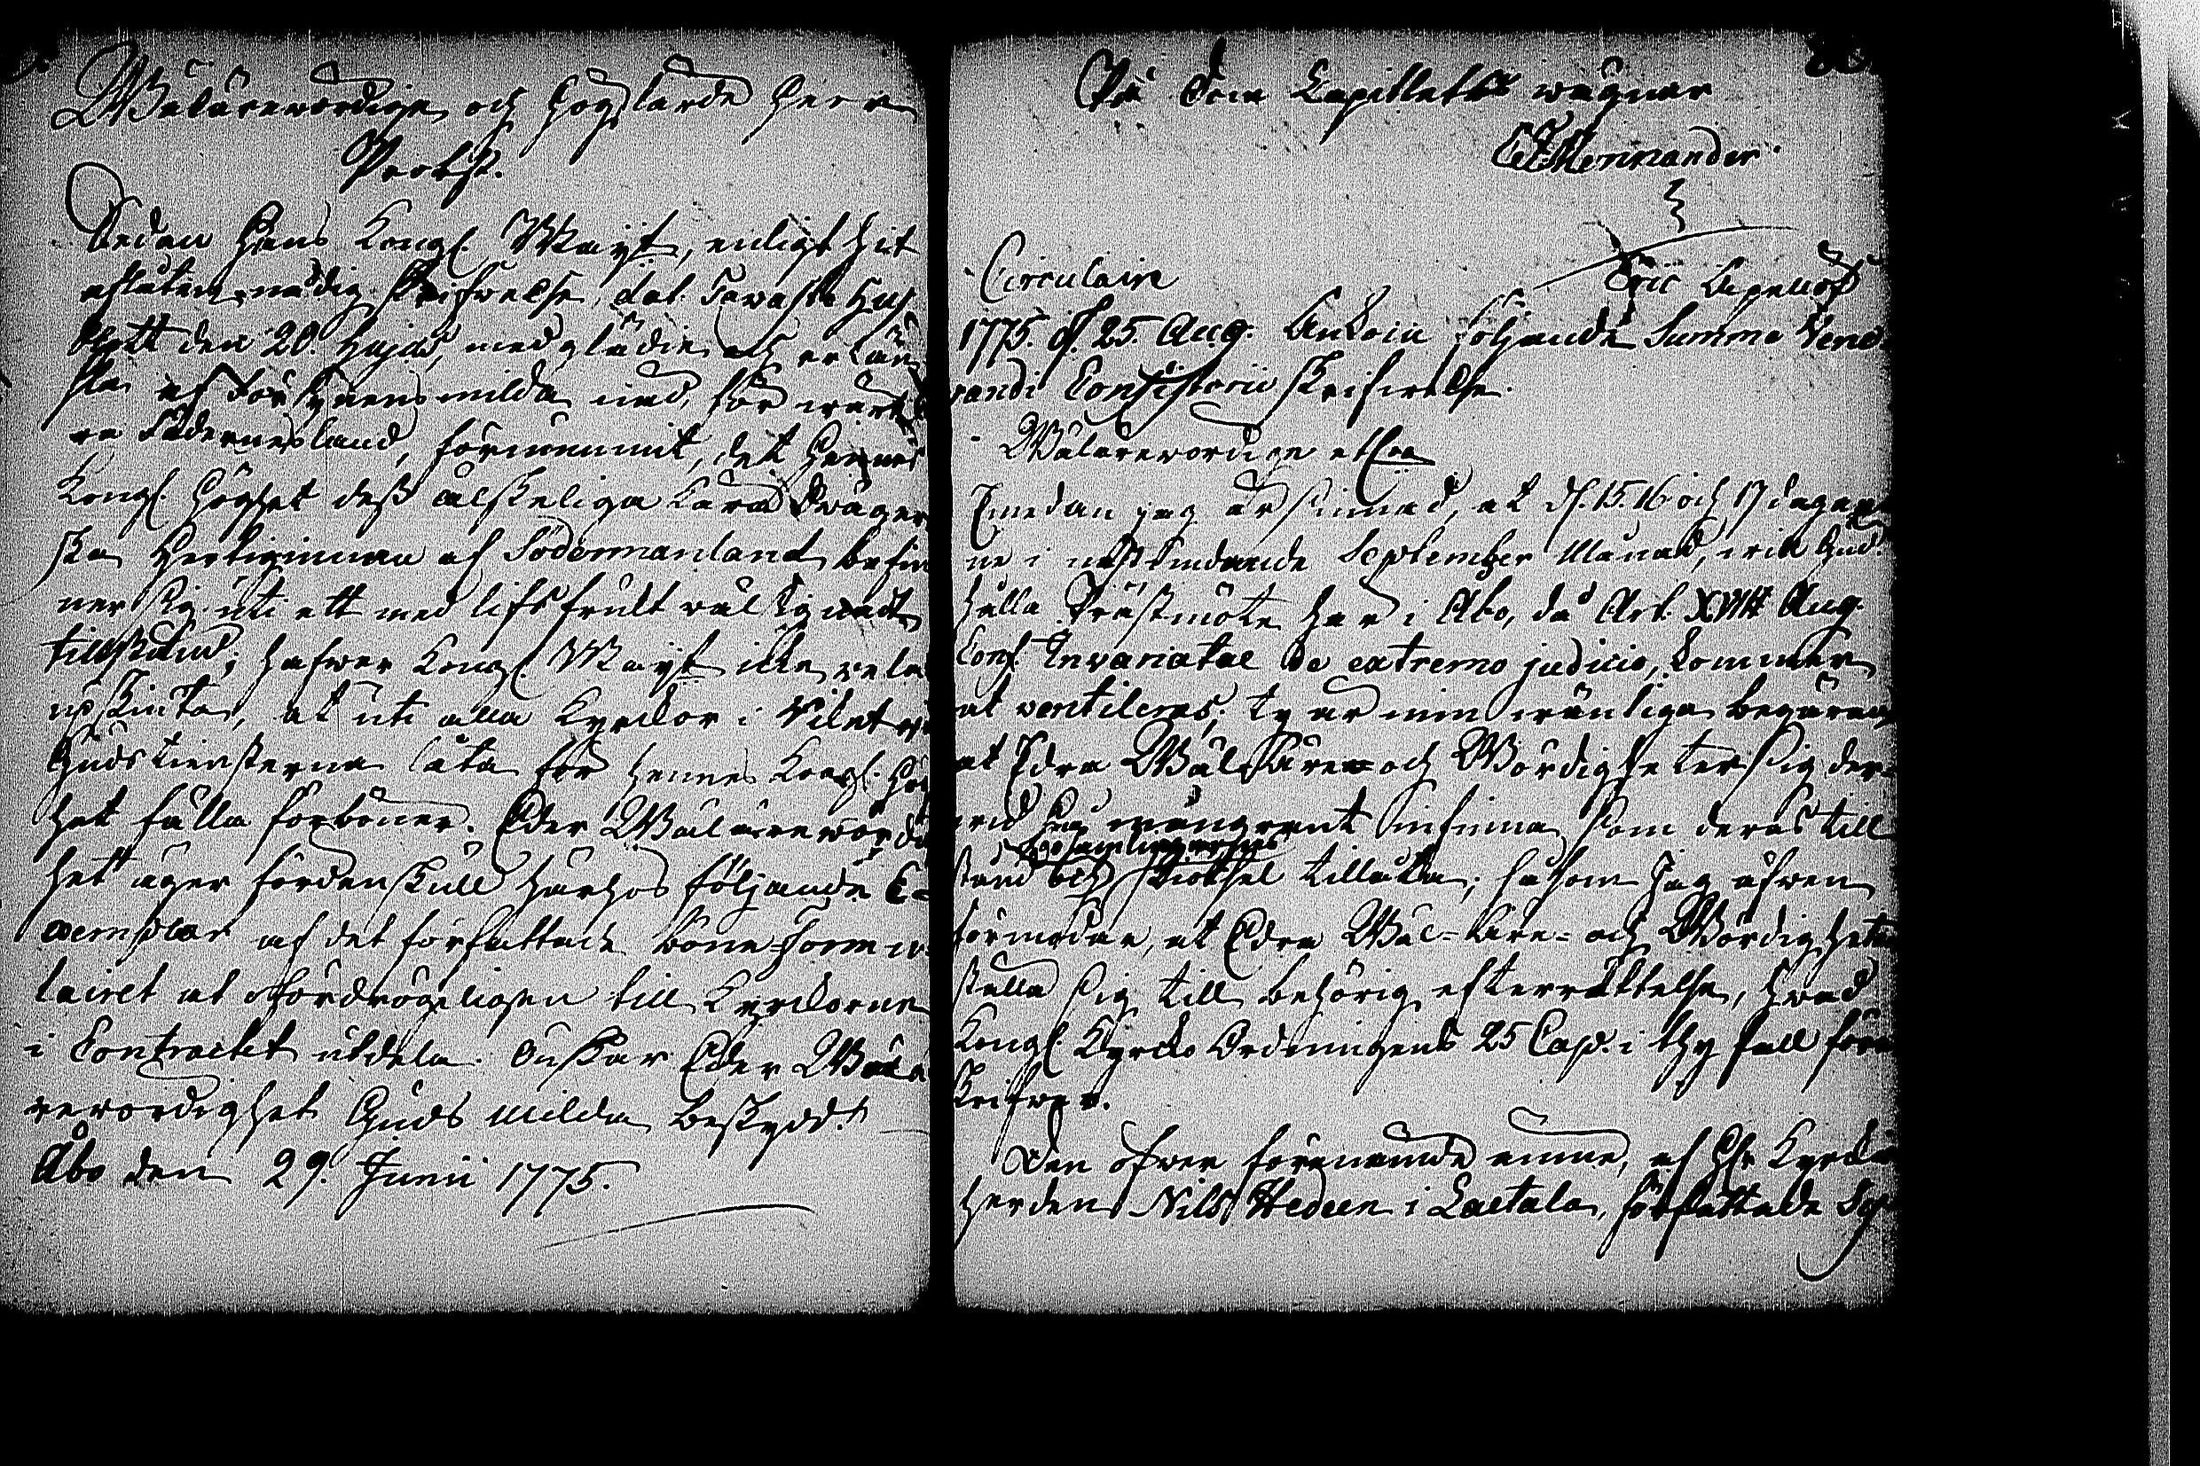 Wälärewördige och Höglärde Herr
Probst.
Sedan Hans Kongl. Maj:t, enligt hit
aflåten nådig skrifwelse, dat. Tavaste huus
Slott den 20. hujus, med glädie och erkän
sla af Försynens milda nåd, för wårt kä
ra Fädernesland, förnummit, det Hennes
Kongl. Höghet dess älskeliga kära Swäger
ska Hertiginnan af Södermanland befin
ner sig uti ett med lifsfrukt wälsignadt
tillstånd; hafwer Kongl. Maj:t icke welat
upskiuta, at uti alla Kyrckor i Riket wid
Gudstiensterna låta för Hennes Kongl. Hög
het hålla förböner. Eder Wälärewördig
het äger fördenskull härhos följande E-
xemplar af det författade böne-Formu
lairet at ofördröjeligen till Kyrckorne
i Contractet utdela. Önskar Eder Wälä
rewördighet Guds milda beskydd.
Åbo den 29. Junii 1775.
På Dom Capitlets wägnar
CFMennander.
Eric Lepenoff
Circulaire
1775. d. 25. Aug. Ankom följande Summe Vene
randi Consistorii skrifwelse.
Wälärewördige etc
Emedan jag är sinnad, at d. 15. 16 och 17 dagar
ne i nästkundande September Månad, will Gud.
hålla Prästmöte här i Åbo, då Art. XVII Aug.
Conf. Invariatae de extremo judicio, kommer
at ventileras; ty är min wänliga begäran
at Edra Wäl-Äre- och Wördigheter sig der-
wid så mangrant infinna, som deras till
församlingarnes
stånd och skiötsel tillåta; såsom Jag äfwen
förmodar, at Edra Wäl-Äre- och Wördigheter
ställa sig till behörig efterrättelse, hwad
Kongl. Kyrcko Ordningens 25 Cap. i thy fall före
skrifwer.
Den öfwer förenämde ämne, af H:r Kyrcko
herden Nils Hedeen i Laitala, författade Sy-